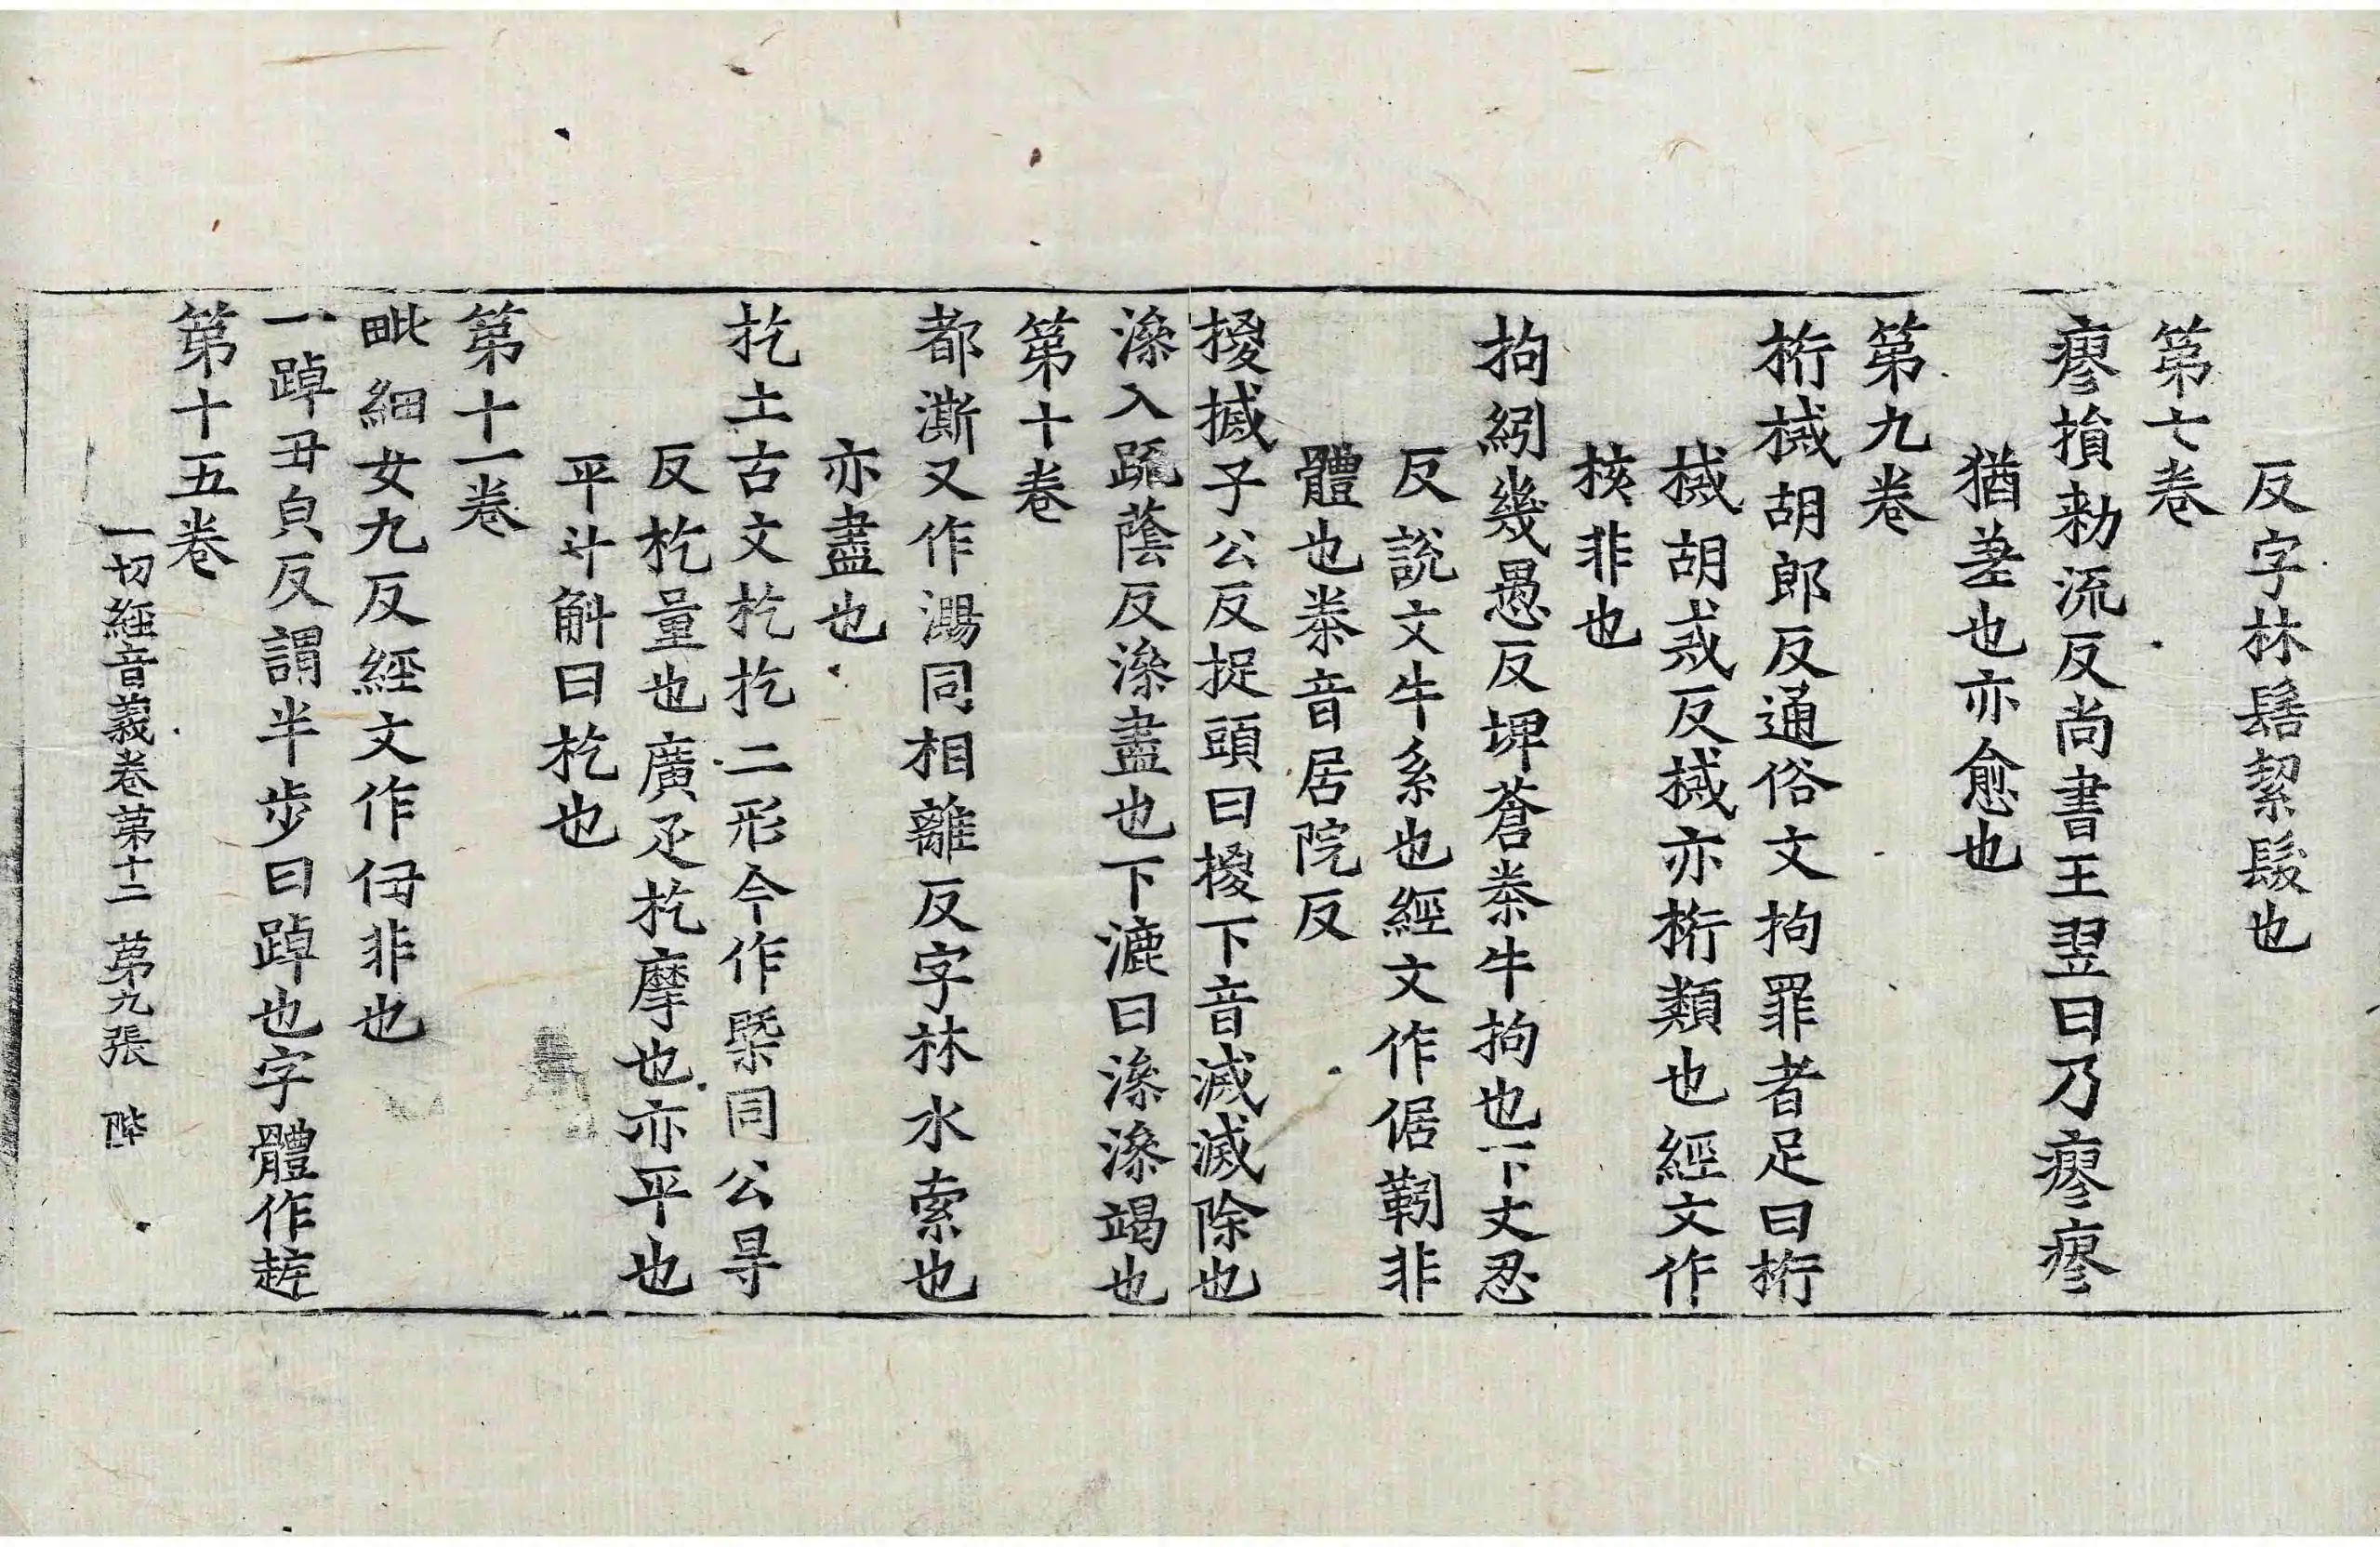 反字林髺絜髮也
第七卷
瘳損勑流反尚書王翌日乃瘳瘳
猶差也亦愈也
第九卷
桁械胡郎反通俗文拘罪者足曰桁
械胡戒反械亦桁類也經文作
核非也
拘紖幾愚反埤蒼桊牛拘也下丈忍
反說文牛系也經文作倨靷非
體也桊音居院反
揯搣子公反捉頭曰揯下音滅滅除也
滲入踈蔭反滲盡也下漉曰滲滲竭也
第十卷
都澌又作㵣同相離反字林水索也
亦盡也
扢土古文杚扢二形今作槩同公㝵
反杚量也廣疋杚摩也亦平也
平斗斛曰杚也
第十一卷
毗細女九反經文作㑄非也
一踔丑皃反謂半步曰踔也字體作䞬
第十五卷
一切經音義卷第十二 第九張 陛